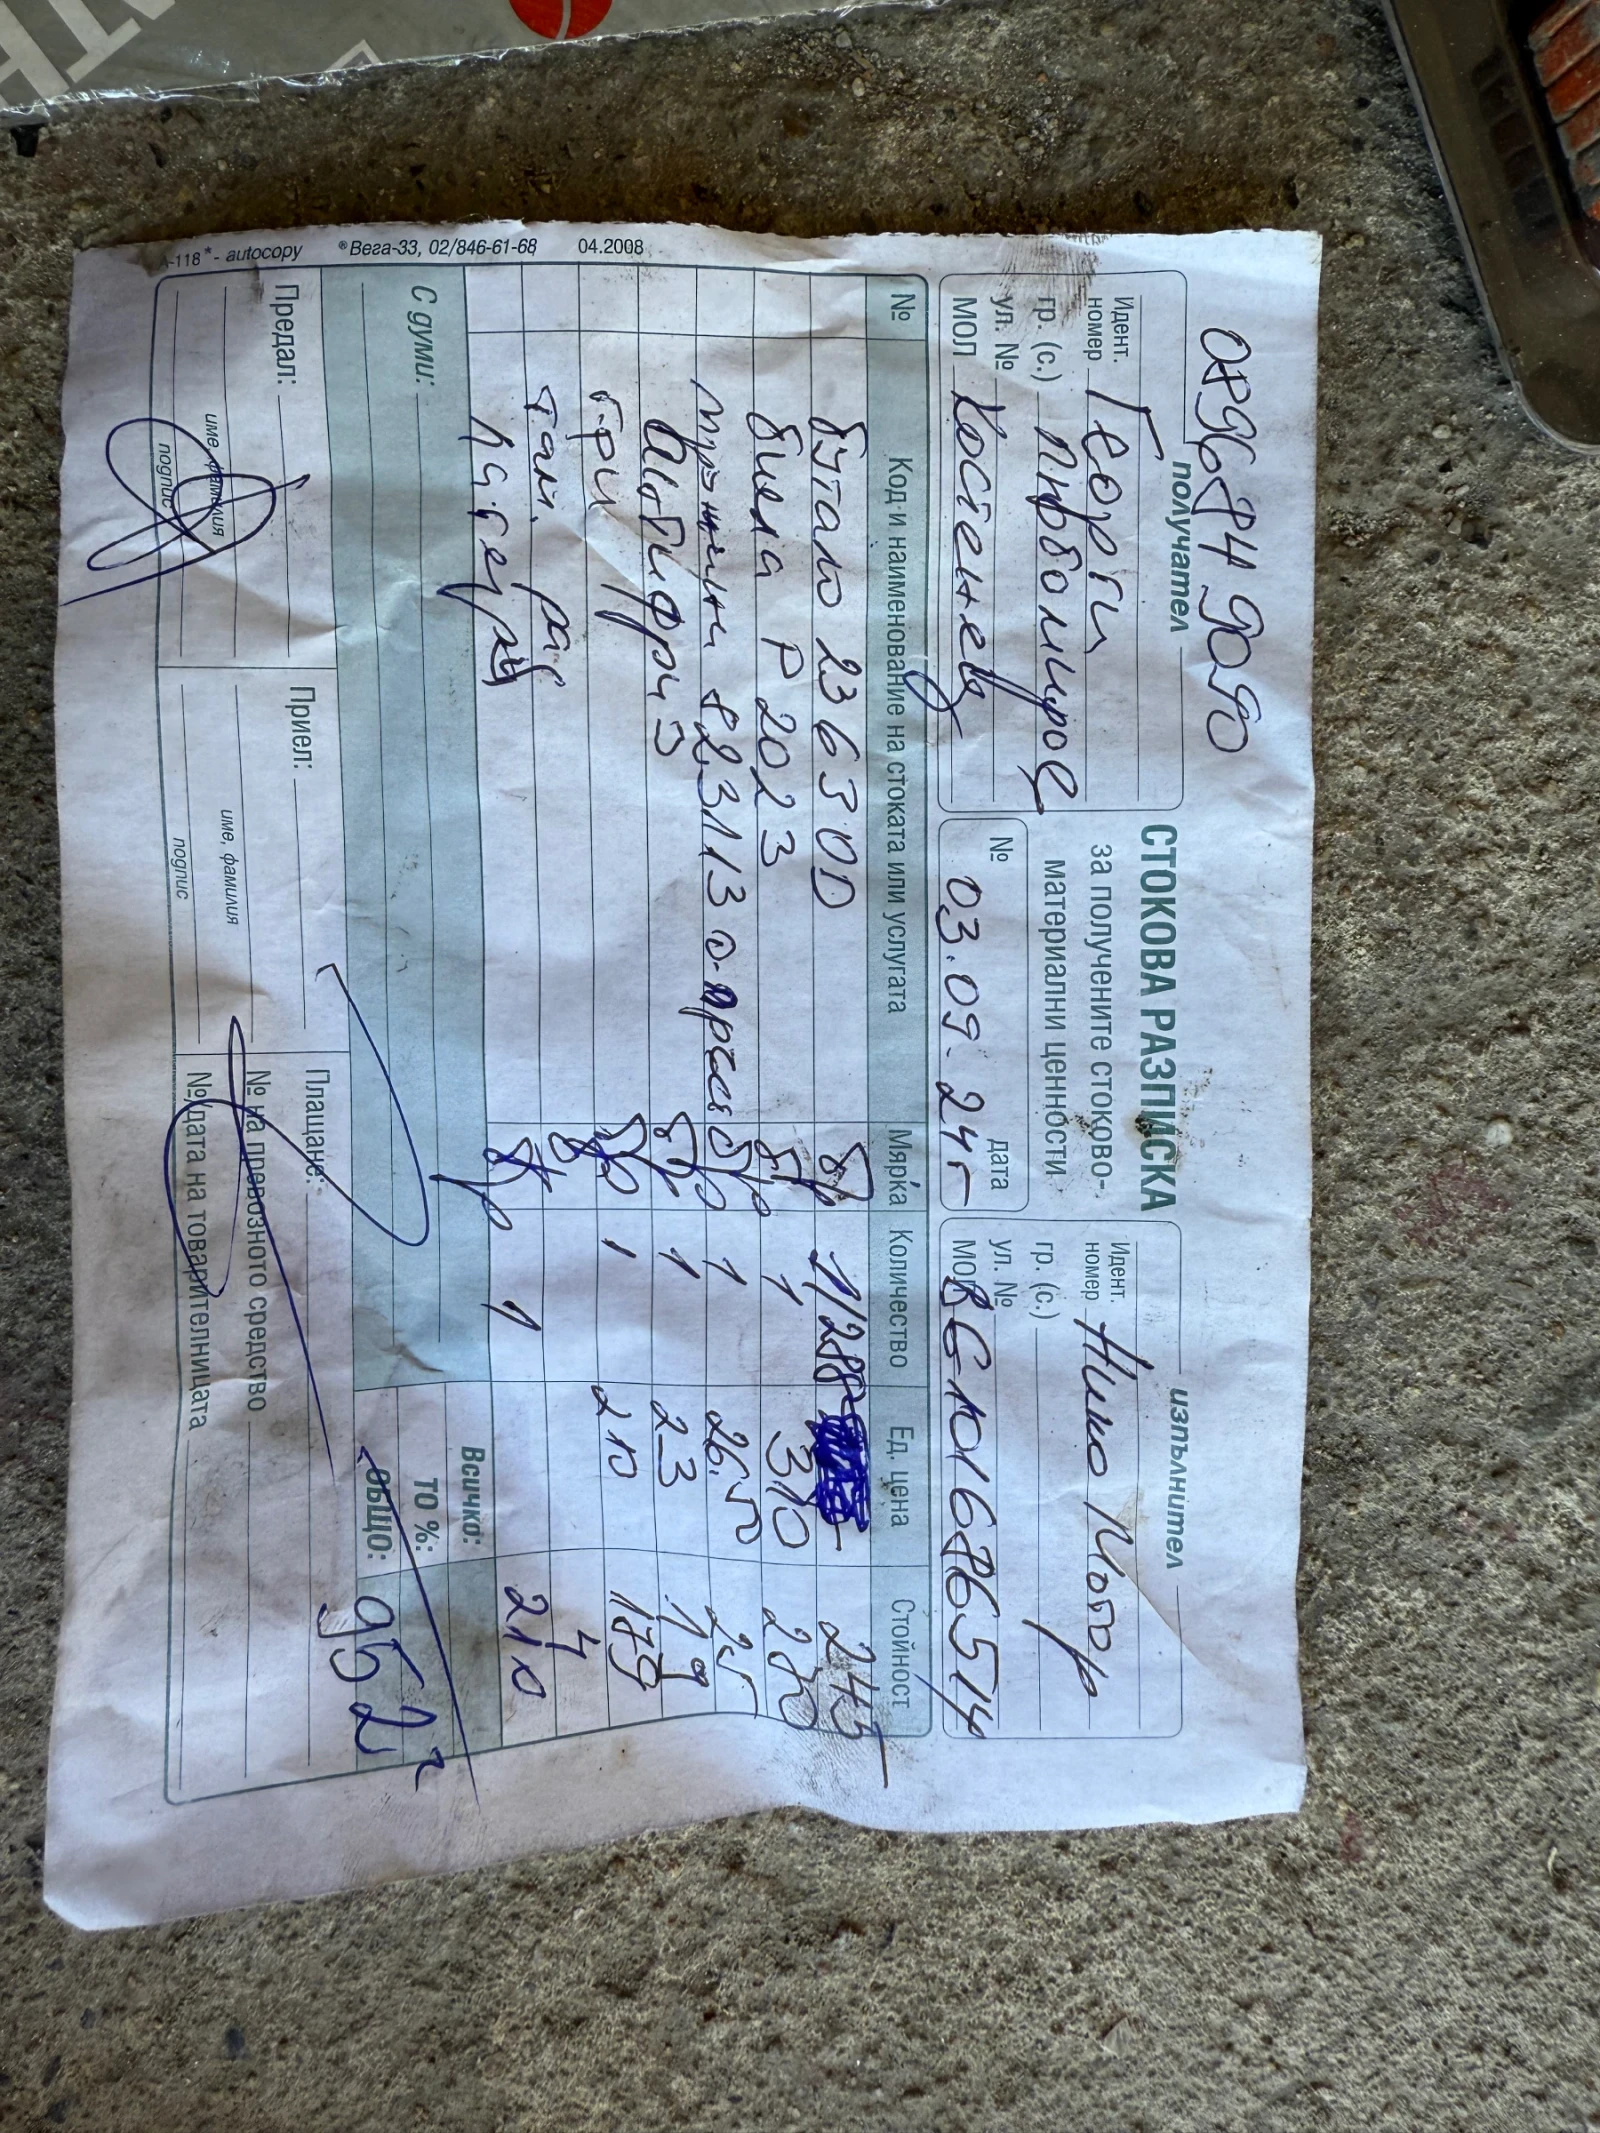 0896849090
получател
СТОКОВА РАЗПИСКА
за получените стоково-
материални ценности
изпълнител
Идент. номер Георги
гр. (с.)
ул. №
МОЛ Костенец
№ дата
03.09.24г
Идент. номер Нико Мотор
гр. (с.)
ул. №
МОЛ BG101686514
№ Код и наименование на стоката или услугата Мярка Количество Ед. цена Стойност
бутало 23630D бр 1/288 245
биела P2023 бр 1 310
823113 бр 1 26.5 25
Антифриз бр 1 23 19
г-ри бр 1 210 179
бр 4
лагеры бр 1 210
Всичко:
ТО %:
С думи: ОБЩО: 952
Предал:
име, фамилия
подпис
Приел:
име, фамилия
подпис
Плащане:
№ на превозното средство
№/дата на товарителницата
А-118* - autocopy ®Вега-33, 02/846-61-68 04.2008